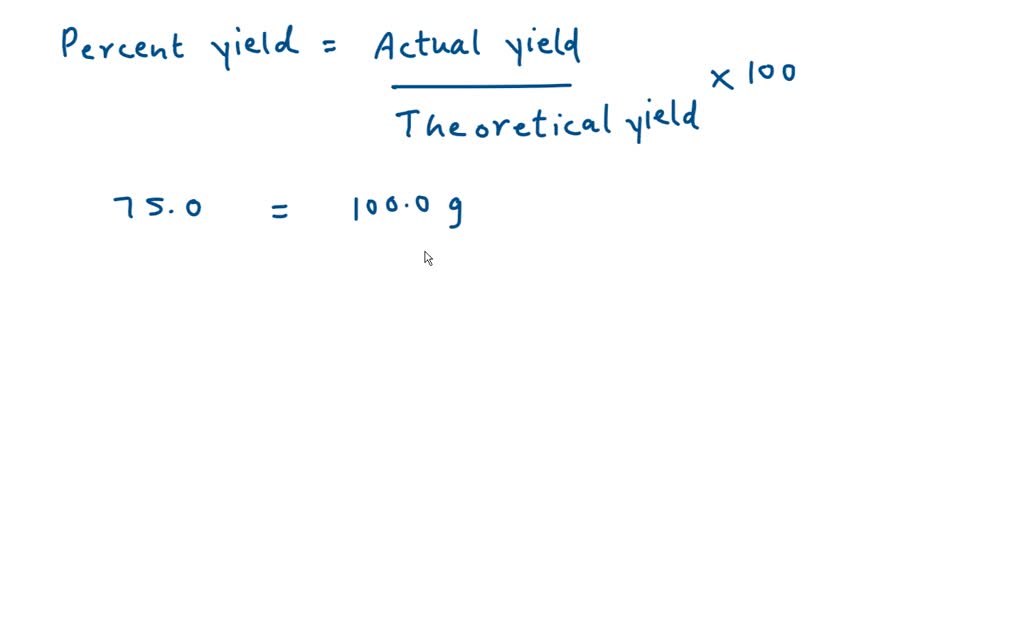 Percent yield = Actual yield
Theoretical yield × 100
75.0 = 100.0 g